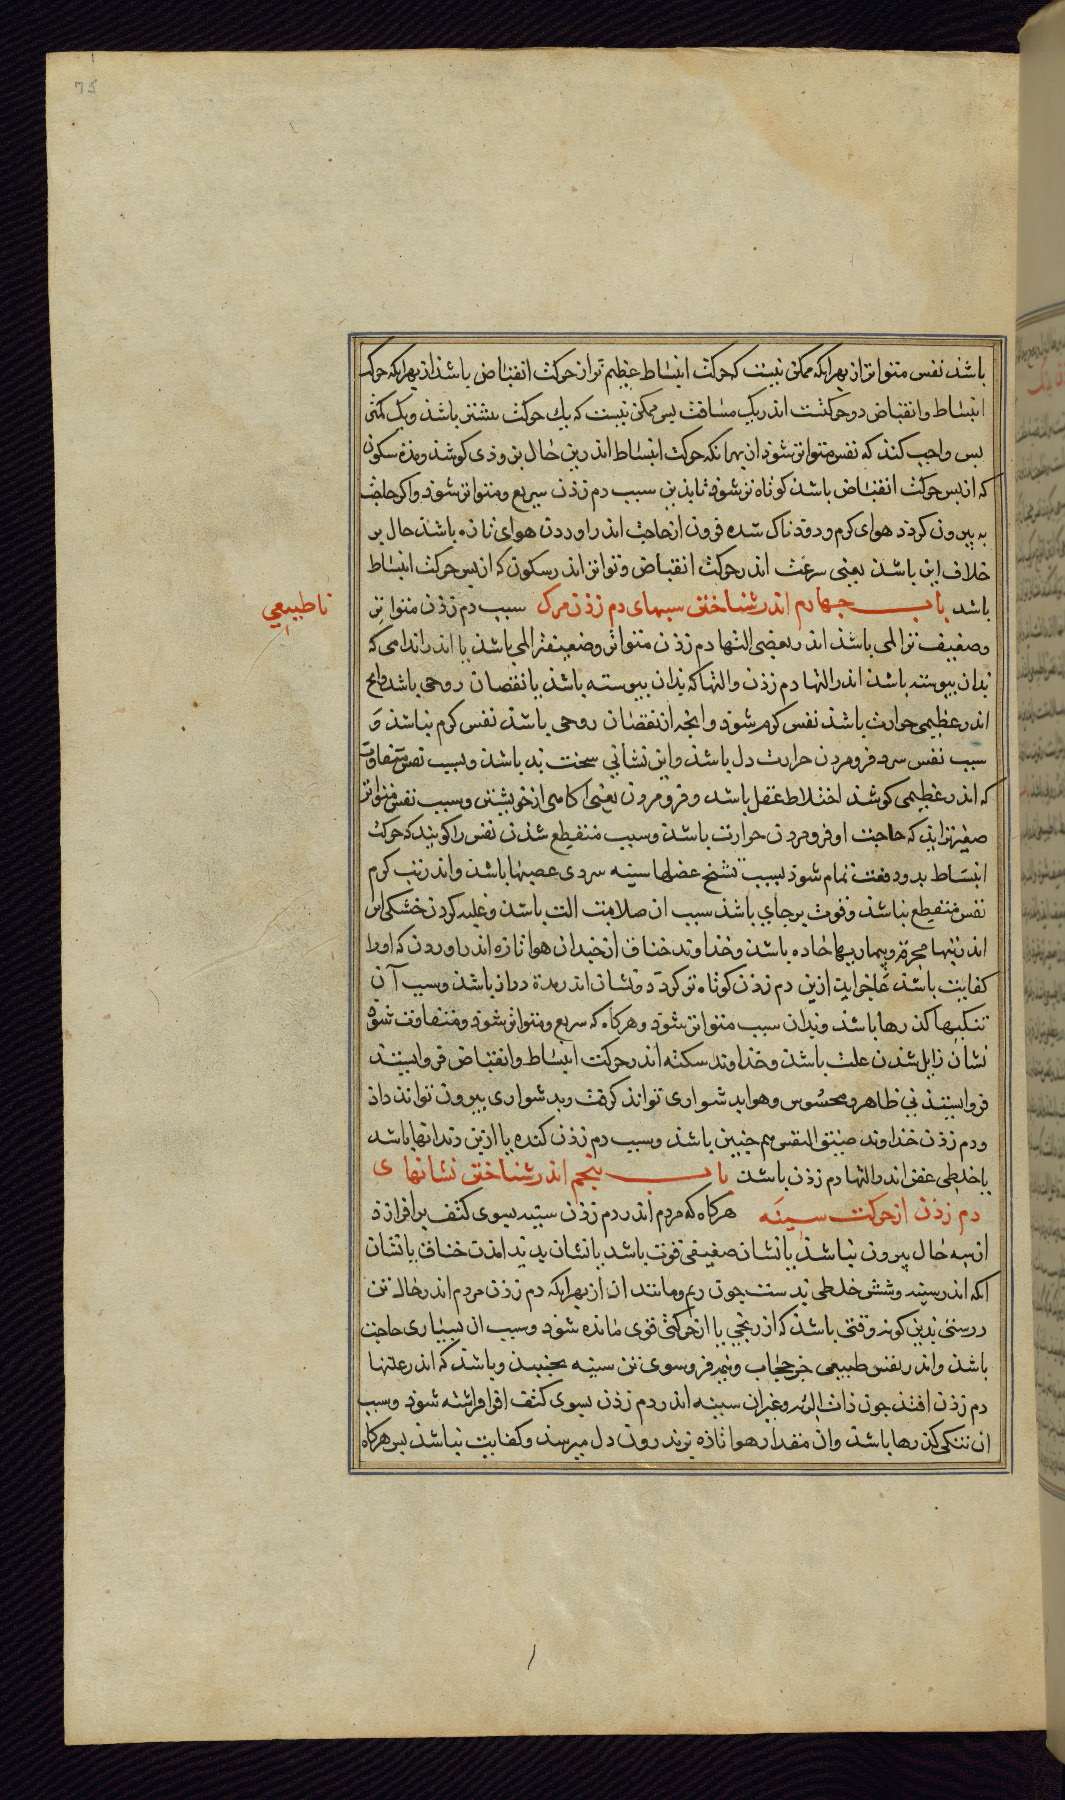 75
باشذ نفس متواتر از بهر انکه ممکن نیست که حرکت انبساط عظیم تر از حرکت انقباض باشذ از بهر انکه حرکت
انبساط وانقباض دو حرکتست اندر یک مسافت پس ممکن نیست که یک حرکت بیشتر باشذ ویک کمتر
پس واجب کند که نفس متواتر شوذ از بهر انکه حرکت انبساط اندرین حال بزوذی کوشذ ومدة سکون
که از پس حرکت انقباض باشذ کوتاه تر شوذ تا بذین سبب دم زذن سریع ومتواتر شوذ واکر حاجت
به بیرون کردن هوای کرم ودوذناک شده فزون از حاجت اندر اوردن هوای تازه باشذ حال بر
خلاف این باشذ یعنی سرعت اندر حرکت انقباض وتواتر اندر سکون که از پس حرکت انبساط
باشذ باب چهارم اندر شناختن سببهای دم زذن مرک سبب دم زذن متواتر
ناطبیعی
وضعیف تر المی باشذ اندر بعضی التها دم زذن متواتر وضعیفتر المی باشذ یا اندر اندامی که
بدان پیوسته باشذ اندر التها دم زذن والتها که بذان پیوسته باشذ یا نقصان روحی باشذ وانج
اندر عظیمی حرارت باشذ نفس کرم شوذ وانجه از نقصان روحی باشذ نفس کرم نباشذ و
سبب نفس سرد فرو مردن حرارت دل باشذ واین نشانی سخت بد باشذ وسبب نفس متفاوت
که اندر عظیمی کوشذ اختلاط عقل باشد وفرو مردن یعنی اکاهی از خویشتن وسبب نفس متواتر
صغیر تر اید که حاجت او فرو مردن حرارت باشذ وسبب منقطع شذن نفس را کویند که حرکت
انبساط بدو دفعت تمام شوذ بسبب تشنج عضلها سینه سردی عصبها باشذ واندر تب کرم
نفس منقطع نباشذ وقوت بر جای باشذ سبب ان صلابت الت باشذ وغلبه کردن خشکی این
اندر تبها محرقه وبیماریها حاده باشذ وخذاوند خناق از خبدان هوا تازه اندر اوردن که اورا
کفایت باشذ عاجز ایذ ازین دم زذن کوتاه تر کردد ونشان اندر مدة دراز باشذ وسبب آن
تنکیها کذرها باشذ وبذان سبب متواتر شوذ وهرکاه که سریع ومتواتر شوذ ومتفاوت شوذ
نشان زایل شذن علت باشذ وخذاوند سکته اندر حرکت انبساط وانقباض فروایستذ
فروایستذنی ظاهر ومحسوس وهوا بدشواری تواند کرفت وبدشواری بیرون تواند داذ
ودم زذن خذاوند ضیق النفس هم چنین باشذ وسبب دم زذن کنده یا ازین دندانها باشد
یا خلطی عفن اندر التها دم زذن باشذ باب پنجم اندر شناختن نشانهای
دم زذن از حرکت سینه هرکاه که مردم اندر دم زذن سینه بسوی کتف برافرازذ
از سه حال بیرون نباشذ یا نشان ضعیفی قوت باشد یا نشان پدید امدن خناق یا نشان
انکه اندر سینه وشش خلطی بد ست جون ریم ومانند ان از بهر انکه دم زذن مردم اندر حال تن
درستی بدین کونه وقتی باشذ که از رنجی یا از حرکتی قوی مانده شوذ وسبب ان بسیاری حاجت
باشذ واندر نفس طبیعی جز حجاب ونیمه فروسوی تن سینه بجنبیذ وباشذ که اندر علتها
دم زذن افتذ جون ذات الریه وغیر ان سینه اندر دم زذن بسوی کتف افرافراشته شوذ وسبب
ان تنکی کذرها باشذ وان مقدار هوا تازه بزند رون دل میرسذ وکفایت نباشذ پس هرکاه